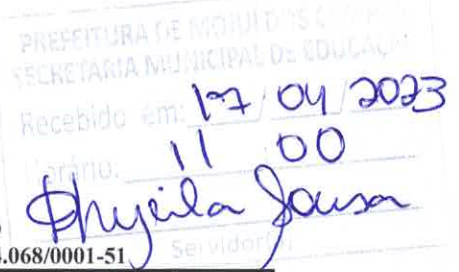 PREFEITURA DE MOJUÍ DOS C
SECRETARIA MUNICIPAL DE EDUCAÇÃ
Recebido em: 17/04/2023
Horário: 11 00
Shyeila Sousa
4.068/0001-51
Servidor(a)